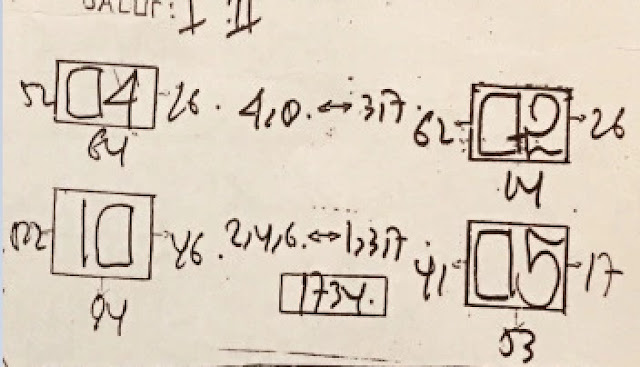 52 04 26. 4,0. ↔ 3,7. 62 02 26
64 14
10 46. 2,4,6. ↔ 1,3,7. 41 05 17
1734.
94 53